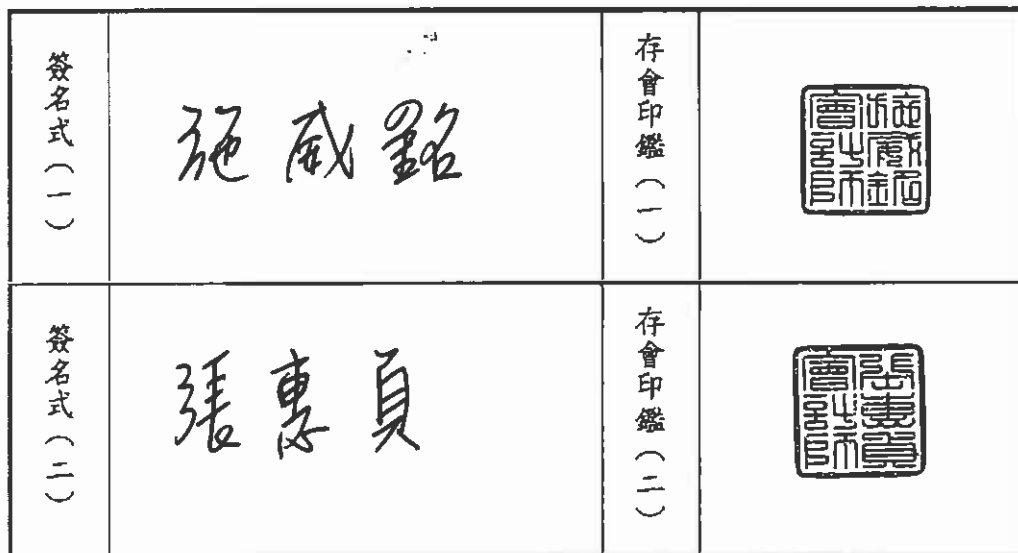 簽名式(一)
施威銘
存會印鑑(一)
施威銘會計師
簽名式(二)
張惠貞
存會印鑑(二)
張惠貞會計師